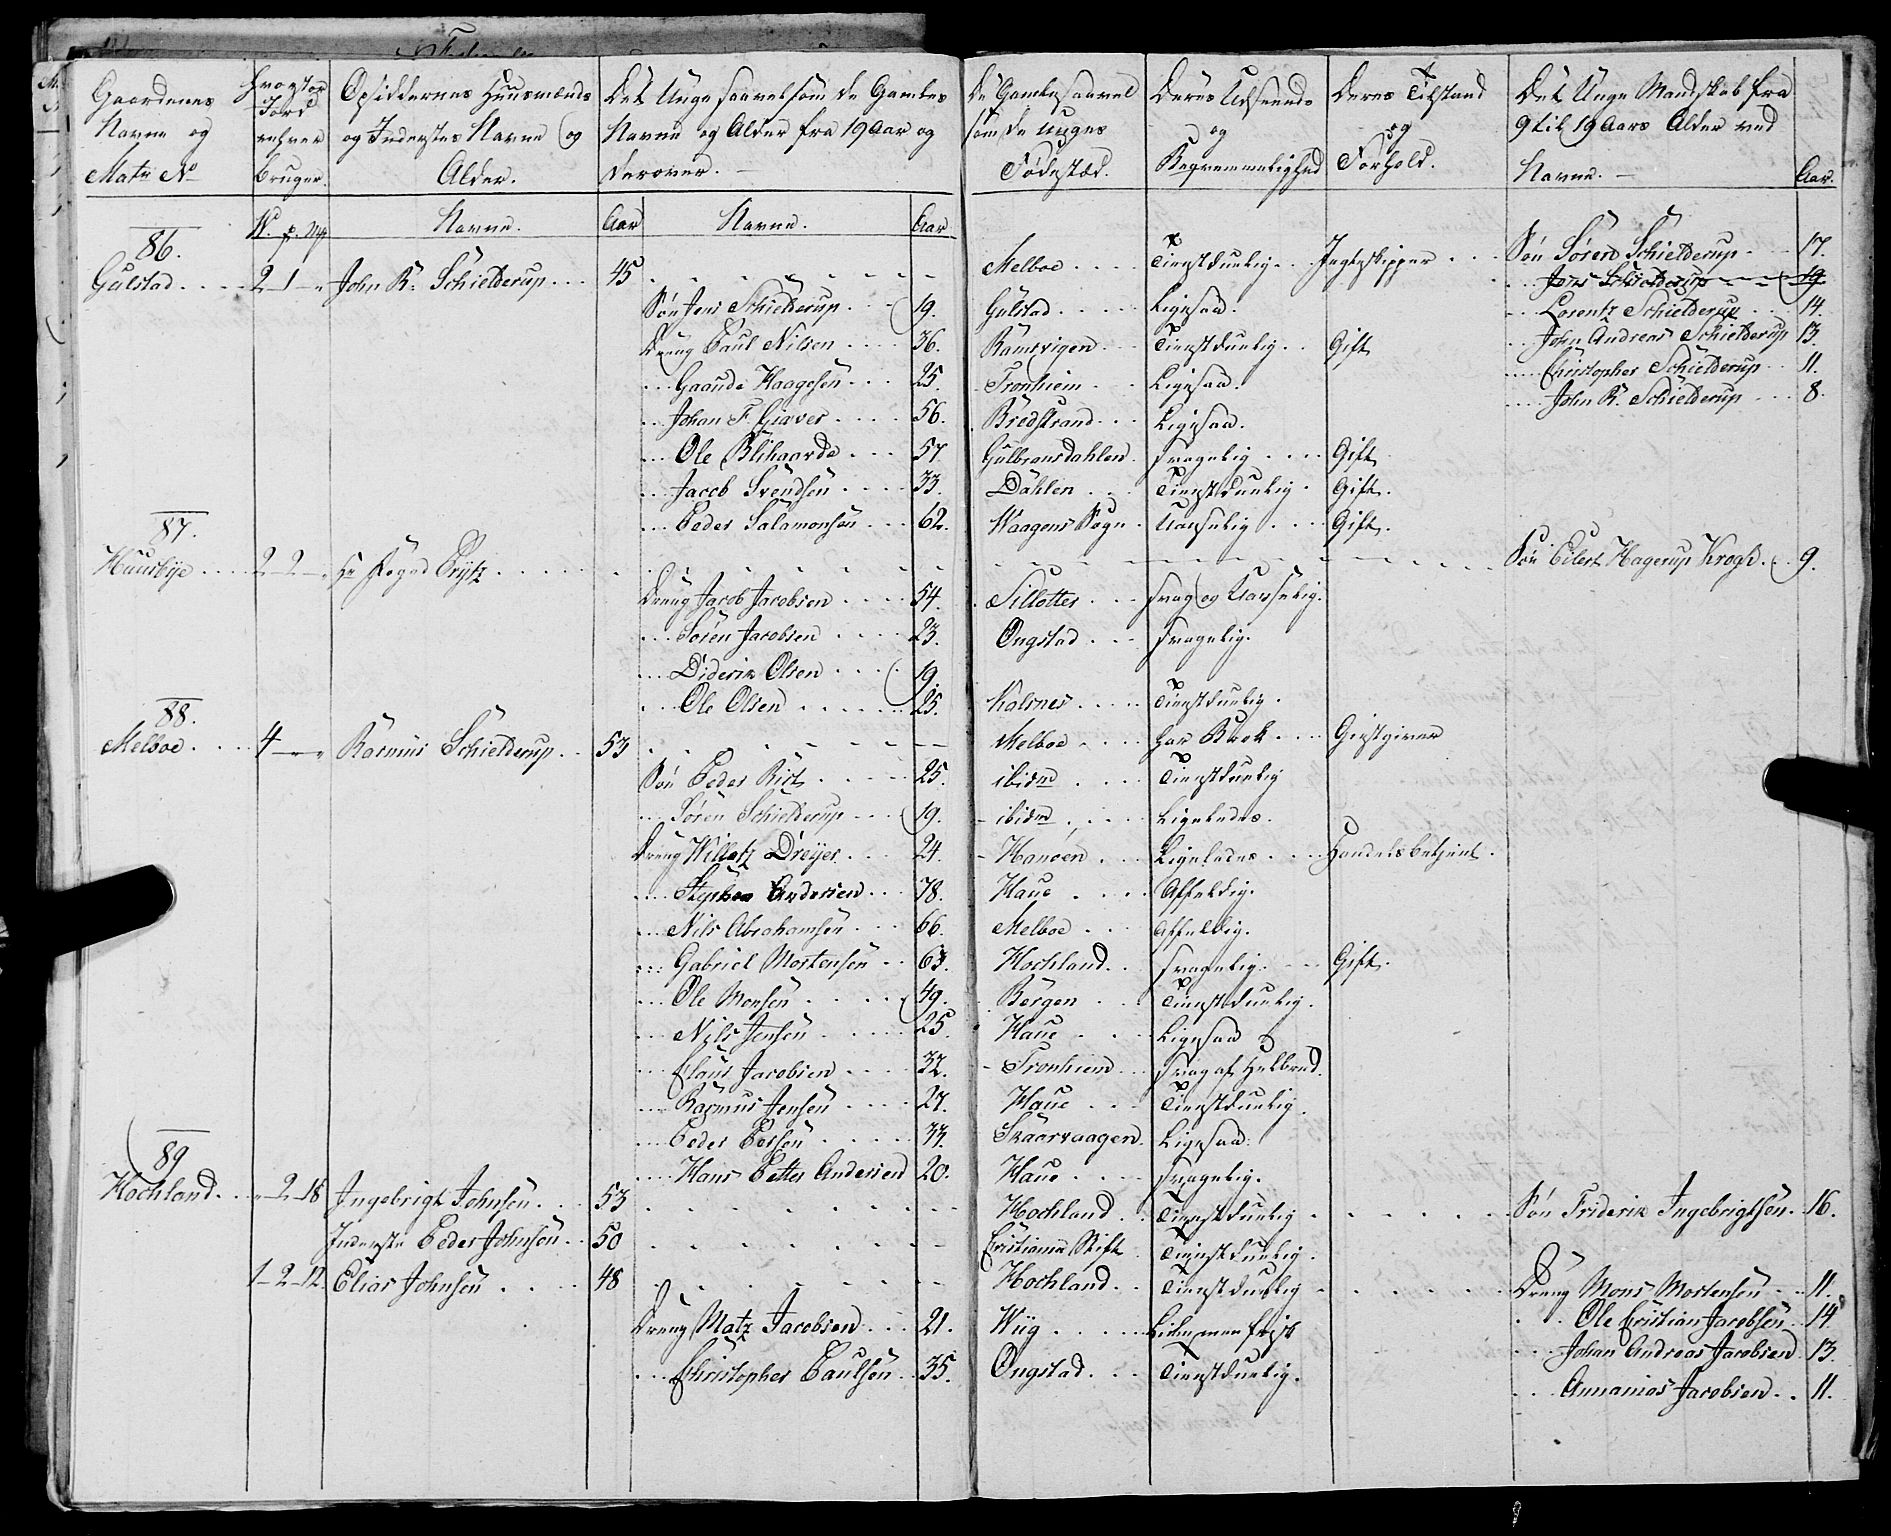 Gaardenes Navne og Matr No | Hvogtor Jord enhver bruger. | Opsiddernes Huusmænds og Inderstes Navne og Alder. | Det Unge saavelsom de Gamles Navne og Alder fra 19 Aar og derover. | De Gamle saavel som de unges Fødestæd. | Deres Udseende og Beqvemmelighed | Deres Tilstand og Forhold. | Det Unge Mandskab fra 9 til 19 Aars Alder ved Navne. | Aar.
W. p. Mk | Navne. | Aar | Navne. | Aar
86.
Gulstad | 2 1 " | John R. Schielderup | 45 | Melboe | Tienstduelig | Jegteskipper | Søn Søren Schielderup | 17.
Jens Schielderup | 19
Søn Jens Schielderup | 19. | Gulstad | Ligesaa. | Lorentz Schielderup | 14.
Dreng Paul Nilsen | 36. | Ramsvigen | Tienstduelig | Gift | John Andreas Schielderup | 13.
Gaaude Haagesen | 25. | Tronhiem | Ligesaa. | Christopher Schielderup | 11.
Johan F. Giæver | 56. | Bredstrand | Ligesaa. | John R. Schielderup | 8.
Ole Blihaarde | 57 | Gulbransdahlen | svagelig | Gift
Jacob Svendsen | 33. | Dahlen | Tienstduelig | Gift.
Peder Salamonsen | 62. | Waagens Sogn | Uanselig | Gift.
87.
Huusbye | 2 2 " | Hr Foged Prytz | Søn Eilert Hagerup Krogh | 9.
Dreng Jacob Jacobsen | 54. | Sillotter | svag og Uanselig.
Søren Jacobsen | 23. | Ongstad | svagelig.
Diderik Olsen | 19.
Ole Olsen | 25. | Kalsnes | Tienstduelig.
88.
Melboe | 4 " " | Rasmus Schielderup | 53 | Melboe | har Brok | Giestgiver
Søn Peder Rist | 25. | ibidm | Tienstduelig
Søren Schielderup | 19. | ibidm | Ligeledes.
Dreng Willatz Dreyer | 24. | Hanøen | Ligeledes | Handelsbetjent.
Stephen Andersen | 78. | Haue | Affeldig.
Nils Abrahamsen | 66. | Melboe | Affeldig.
Gabriel Mortensen | 63. | Hochland | svagelig. | Gift.
Ole Monsen | 49. | Bergen | Tienstduelig.
Nils Jensen | 25. | Haue | Ligesaa
Claus Jacobsen | 32. | Tronhiem | svag af Helbred.
Rasmus Jensen | 27. | Haue | Tienstduelig.
Peder Persen | 33. | Skaarvaagen | Ligesaa.
Hans Petter Andersen | 20. | Haue | svagelig.
89
Hochland | " 2 18 | Ingebrigt Johnsen | 53 | Hochland | Tienstduelig | Søn Friderik Ingebrigtsen | 16.
Inderste Peder Johnsen | 50 | Cristiania Stift | Tienstduelig.
1 2 12 | Elias Johnsen | 48 | Hochland | Tienstduelig | Dreng Mons Mortensen | 11.
Dreng Matz Jacobsen | 21. | Wiig | Liden men frisk | Ole Cristian Jacobsen | 14
Christopher Paulsen | 35. | Ongstad | Tienstduelig. | Johan Andreas Jacobsen | 13.
Annanias Jacobsen | 11.